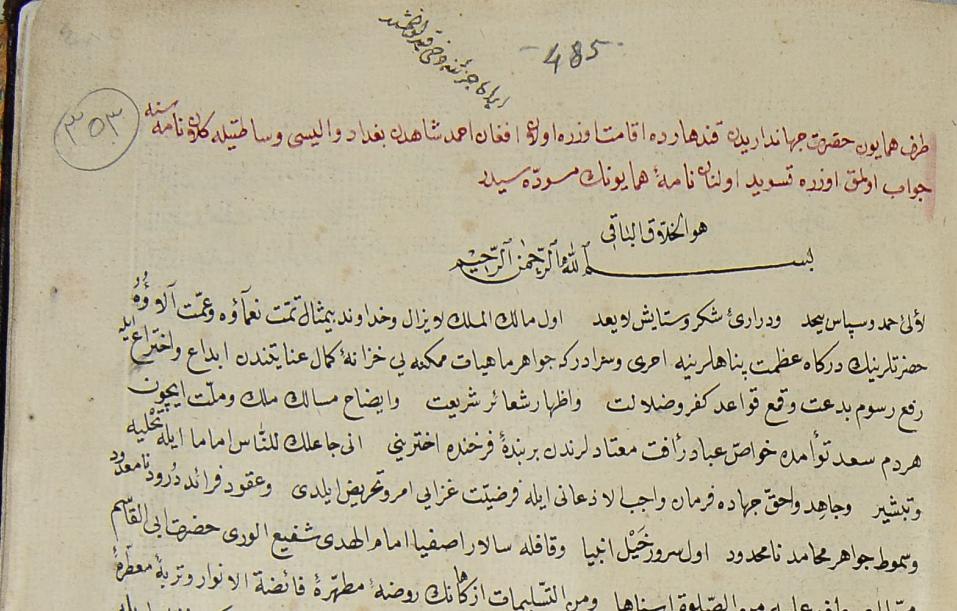 485
٣٥٣
طرف همایون حضرت جهانداریدن قندهارده اقامت اوزره اولان افغان احمد شاهدن بغداد والیسی وساطتیله کلان نامه سنه
جواب اولمق اوزره تسوید اولنان نامهٔ همایونك مسوده سیدر
هو الخلاق الباقی
بسم الله الرحمن الرحیم
لآلئ حمد وسپاس بیحد ودراریٔ شکر وستایش لا یعد اول مالك الملك لا یزال وخداوند بیمثال تمّت نعمآؤه وعمّت آلاؤه
حضرتلرینك درکاه عظمت پناهلرینه احری وسزادرکه جواهر ماهیات ممکنه یی خزانهٔ کمال عنایتندن ابداع واختراع ایله
رفع رسوم بدعت وقمع قواعد کفر وضلالت واظهار شعائر شریعت وایضاح مسالك ملك وملّت ایچون
هردم سعد توأمده خواصّ عباد رأفت معتادلرندن بر بندهٔ فرخنده اخترینی انی جاعلك للنّاس اماما ایله تحلیه
وتبشیر وجاهد واحقّ جهاده فرمان واجب الاذعانی ایله فرضیّت غزایی امر وتحریض ایلدی وعقود فرائد درود نامعدود
وسموط جواهر محامد نامحدود اول سرور خیل انبیا وقافله سالار اصفیا امام الهدی شفیع الوری حضرت ابی القاسم
من الصّلوة اسناها ومن التّسلیمات ازکاها کانك روضهٔ مطهّرهٔ فائضة الانوار وتربهٔ معطّرهٔ